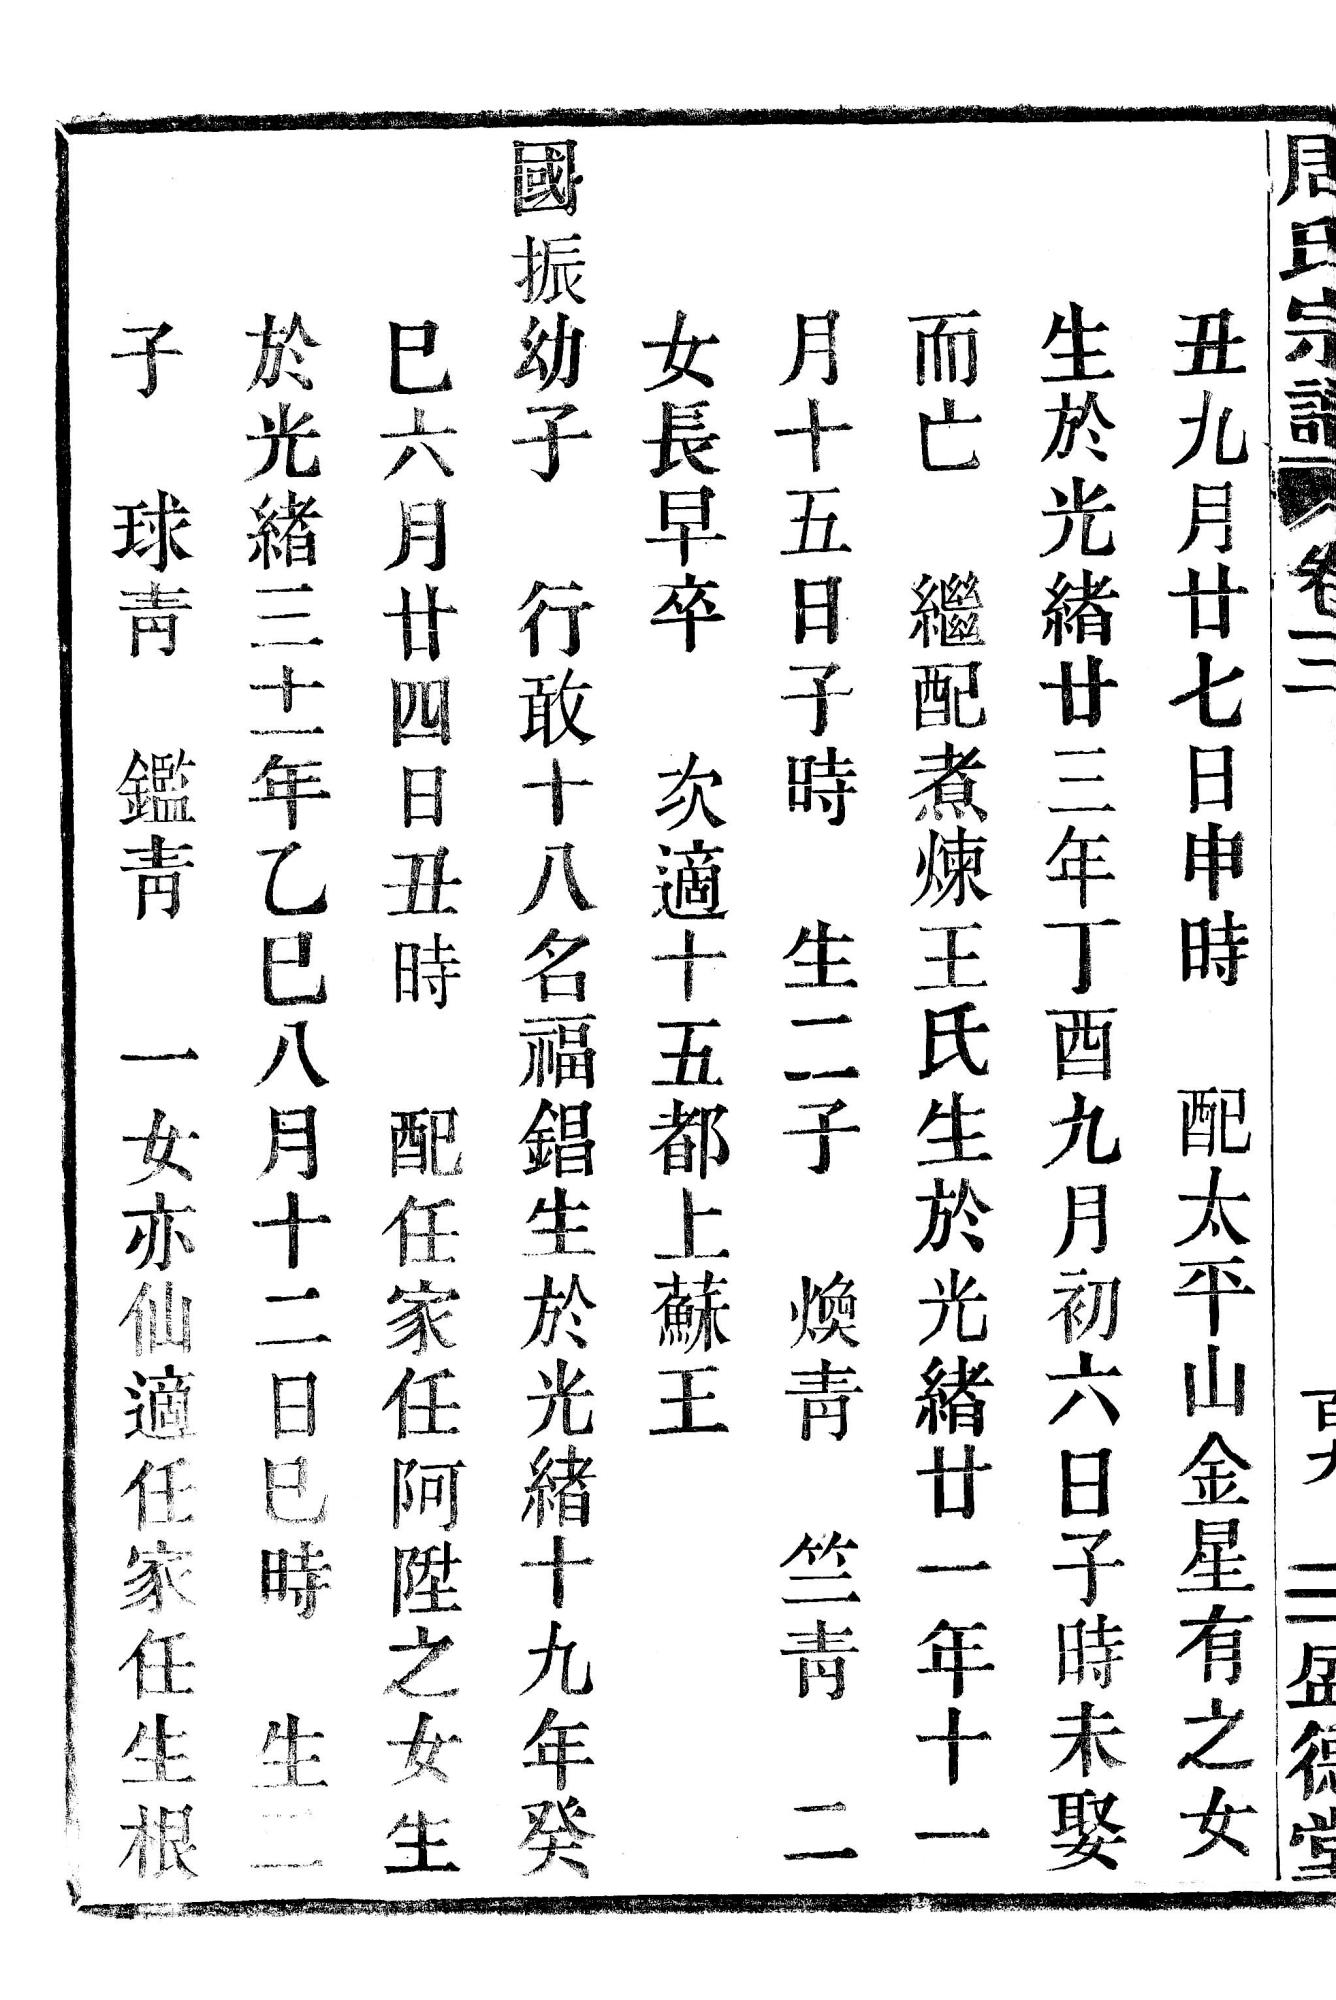 周氏宗譜 卷三 百九 三 盛德堂
丑九月廿七日申時 配太平山金星有之女
生於光緒廿三年丁酉九月初六日子時未娶
而亡 繼配煮煉王氏生於光緒廿一年十一
月十五日子時 生二子 煥靑 竺靑 二
女長早卒 次適十五都上蘇王
國振幼子 行敢十八名福錩生於光緒十九年癸
巳六月廿四日丑時 配任家任阿陞之女生
於光緒三十一年乙巳八月十二日巳時 生二
子 球靑 鑑靑 一女亦仙適任家任生根